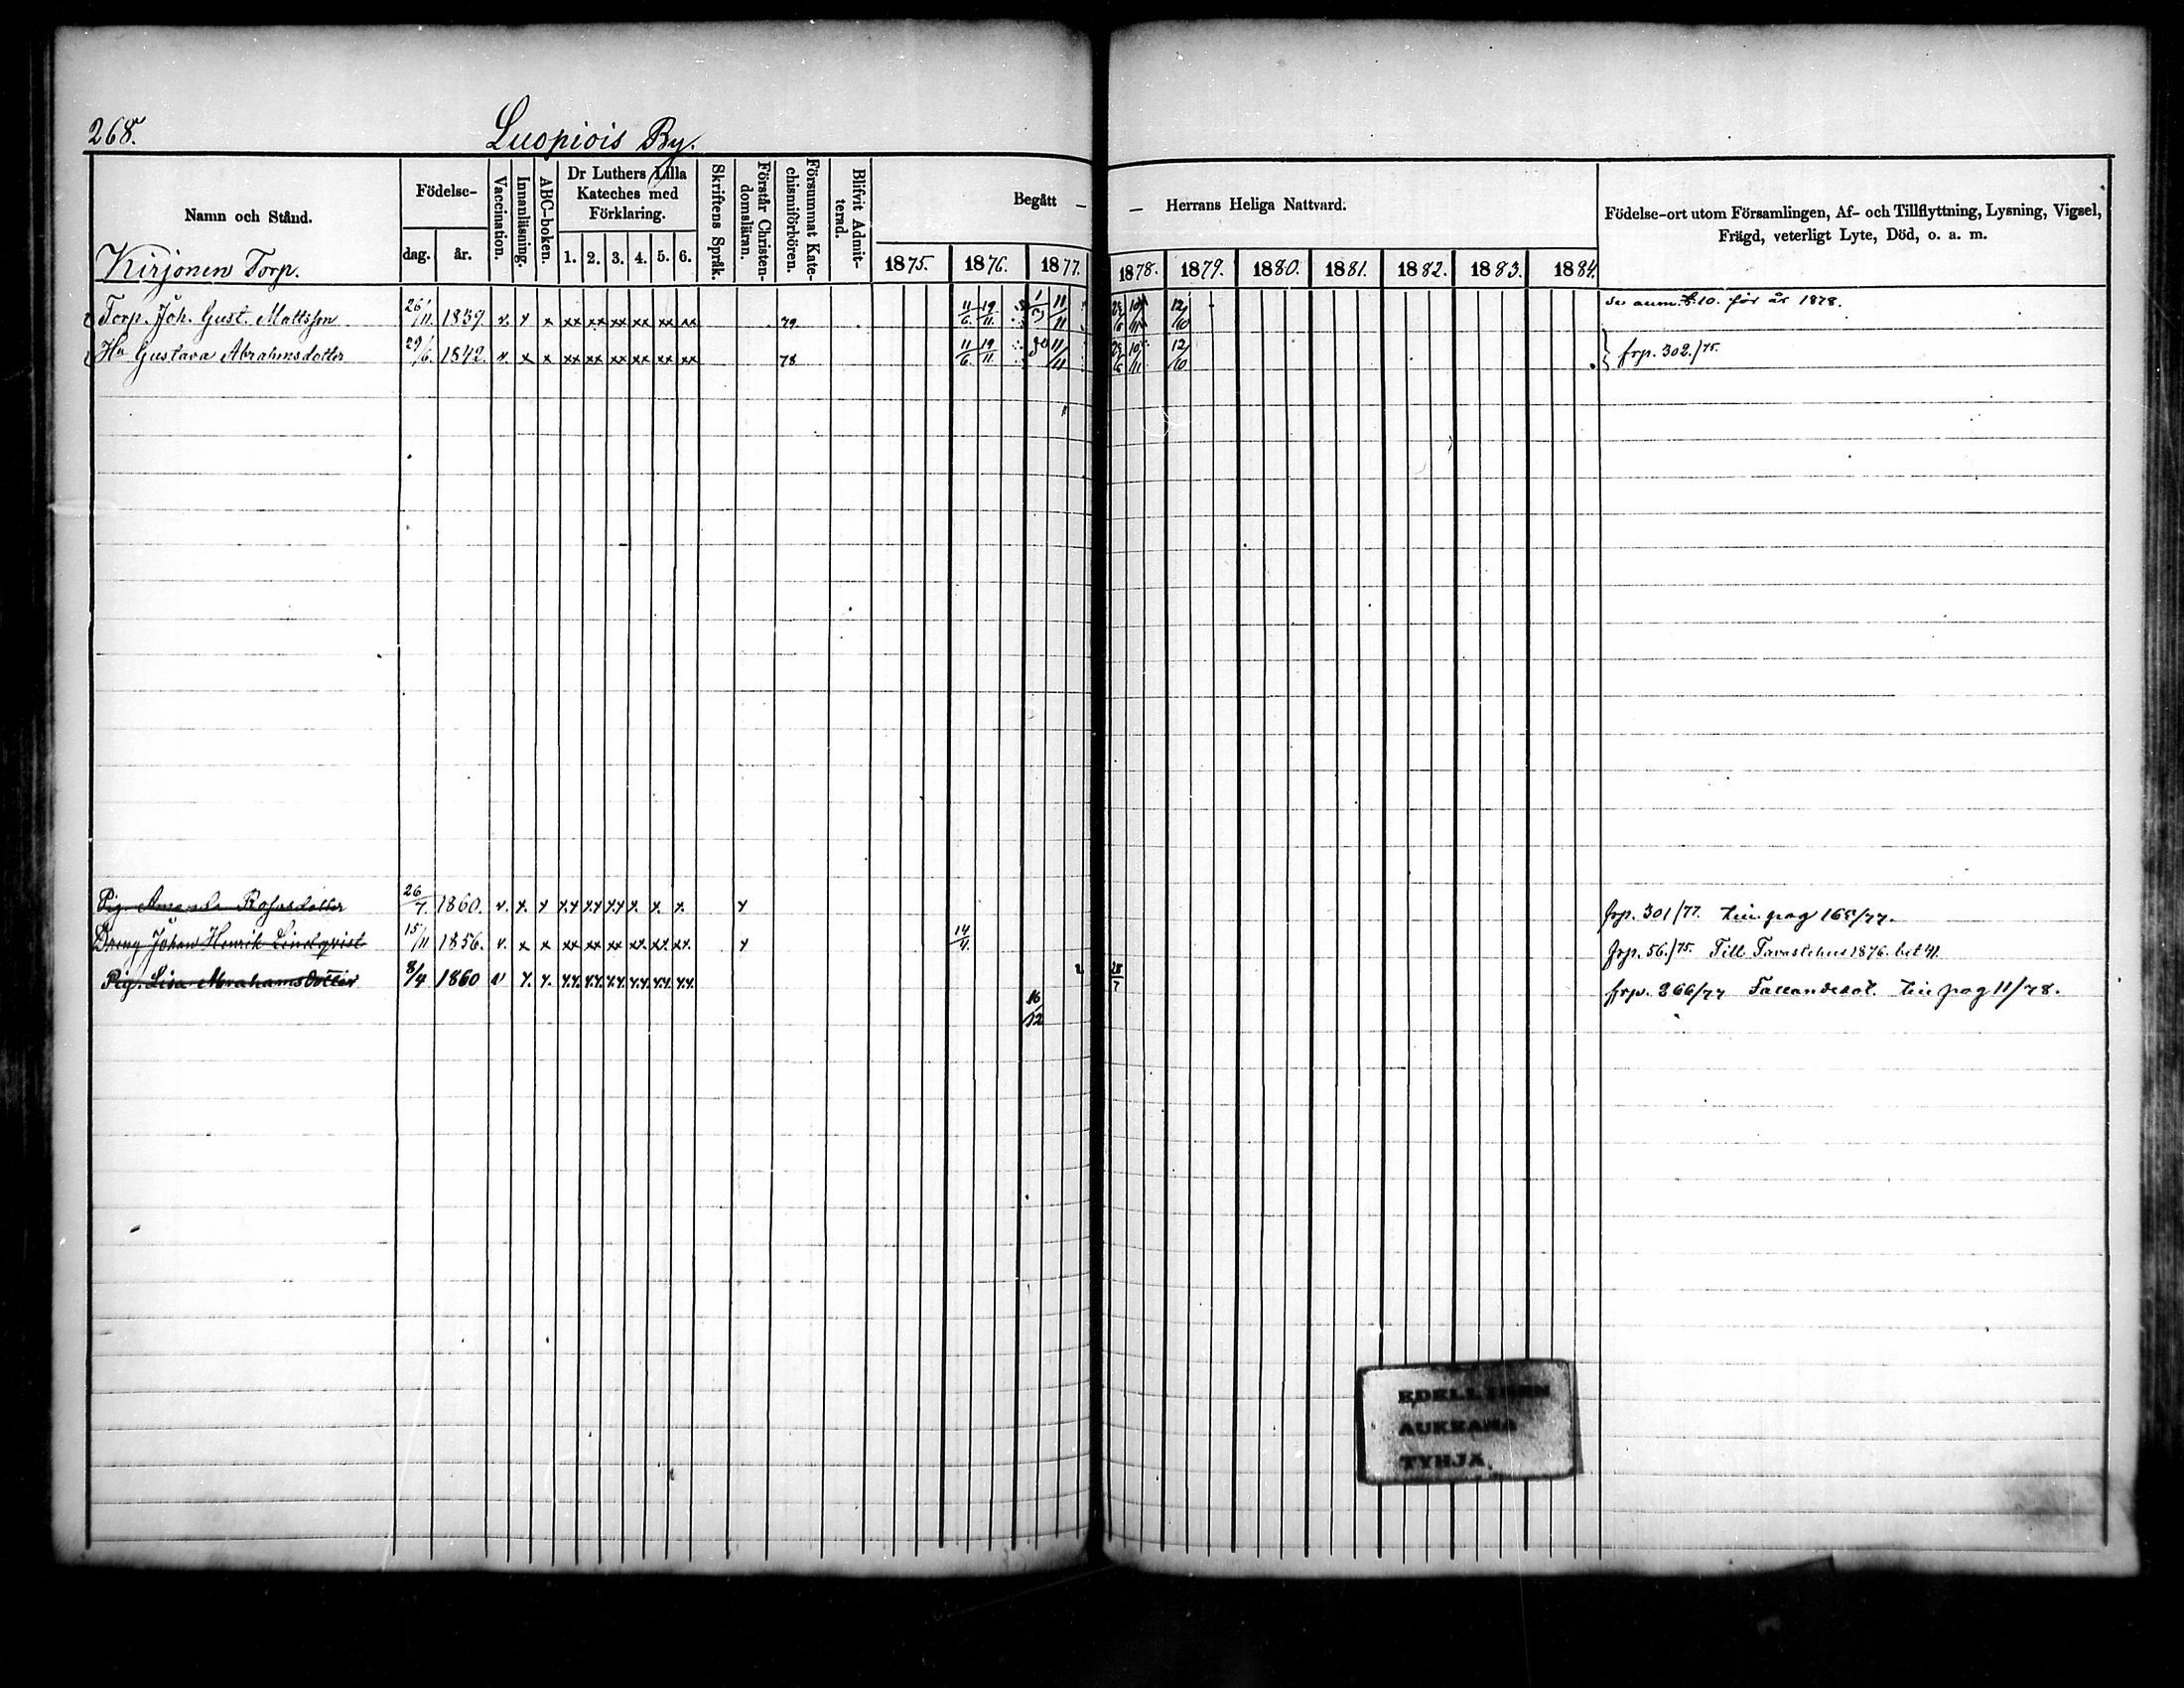 268.
Luopiois By.
Namn och Stånd.
Födelse-
dag. år.
Vaccination.
Innanläsning.
ABC-boken.
Dr Luthers Lilla Kateches med Förklaring.
1. 2. 3. 4. 5. 6.
Skriftens Språk.
Förstår Christen-domsläran.
Försummat Kate-chismiförhören.
Blifvit Admit-terad.
Begått —
— Herrans Heliga Nattvard.
1875. 1876. 1877. 1878. 1879. 1880. 1881. 1882. 1883. 1884.
Födelse-ort utom Församlingen, Af- och Tillflyttning, Lysning, Vigsel,
Frägd, veterligt Lyte, Död, o. a. m.
Kirjonen Torp.
Torp. Joh. Gust. Mattsson 26/11 1839. v. x x xx xx xx xx xx xx 79 11/6. 19/11. 1/3 11/11 12/10 se anm. 10. för år 1878.
Hu Gustava Abrahmsdotter 29/6. 1842. v. x x xx xx xx xx xx xx 78 11/6. 19/11 11/11 12/10 frp. 302./75.
Pig. Amanda 26/7. 1860. v. x. x x.x x.x x.x x. x. x. x frp. 301/77. pag 165/77.
Dreng Johan Henrik Lindqvist 15/11 1856. v. x x xx xx xx xx. xx. xx. x 14/4. frp. 56./75. Till Tavastehus 1876. bet 4.
Pig. Lisa Abrahamsdotter 8/4 1860 v x. x. x.x. x.x. x.x. x.x. x.x. x.x. 28/7 frp. 266/77 pag 11/78.
16/12
EDELLINEN
AUKEAMA
TYHJÄ.